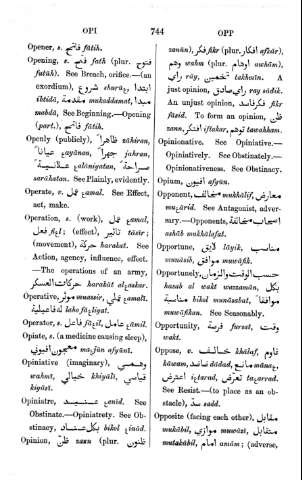 OPI 744 OPP
Opener, s. فاتح fātih.
Opening, s. فتح fath (plur. فتوح
futūh). See Breach, orifice.—(an
exordium) شروع shurūʿ, ابتدا
ibtidā, مقدمه mukaddamat, مبدا
mabdā, See Beginning.—Opening
(part.), فاتح fātih.
Openly (publicly), ظاهرا zāhiran,
عيانا ʿayānan, جهرا jahran,
علانية ʿalāniyatan, صراحة
sarāhatan. See Plainly, evidently.
Operate, v. عمل ʿamal. See Effect,
act, make.
Operation, s. (work), عمل ʿamal,
فعل fiʿl; (effect), تاثير tāsīr;
(movement), حركة harakat. See
Action, agency, influence, effect.
—The operations of an army,
حركات العسكر harakāt alʿaskar.
Operative, موثر muassir, عملي ʿamalī.
Operator, s. فاعل fāʿil, عامل ʿāmil.
Opiate, s. (a medicine causing sleep),
معجون افيوني maʿjūn afyūnī.
Opiniative (imaginary), وهمي
wahmī, خيالي khiyālī, قياسي
kiyāsī.
Opiniatre, عنيد ʿanīd. See
Obstinate.—Opiniatrety. See Ob-
stinacy, بكل عناد bikol ʿinād.
Opinion, ظن zann (plur. ظنون
zanūn), فكر fikr (plur. افكار afkār),
وهم wahm (plur. اوهام awhām),
راي rāy, تخمين takhmīn. A
just opinion, راي صادق rāy sādik.
An unjust opinion, فكر فاسد fikr
fāsid. To form an opinion, ظن
zann, افتكر iftakar, توهم tawahham.
Opinionative. See Opiniative.—
Opiniatively. See Obstinately.—
Opinionativeness. See Obstinacy.
Opium, افيون afyūn.
Opponent, مخالف mukhālif, معارض
muʿārid. See Antagonist, adver-
sary.—Opponents, اصحاب مخالفة
ashāb mukhālafat.
Opportune, لايق lāyik, مناسب
munāsib, موافق muwāfik.
Opportunely, حسب الوقت والزمان
hasab al wakt wazzamān, بكل
مناسبة bikol munāsabat, موافقا
muwāfikan. See Seasonably.
Opportunity, فرصة fursat, وقت
wakt.
Oppose, v. خالف khālaf, قاوم
kāwam, ضادد dādad, مانع mānaʿ,
اعترض iʿtarad, تعرض taʿarad.
See Resist.—(to place as an ob-
stacle), سد sadd.
Opposite (facing each other), مقابل
mukābil, موازي muwāzī, متقابل
mutakābil, امام amām; (adverse,